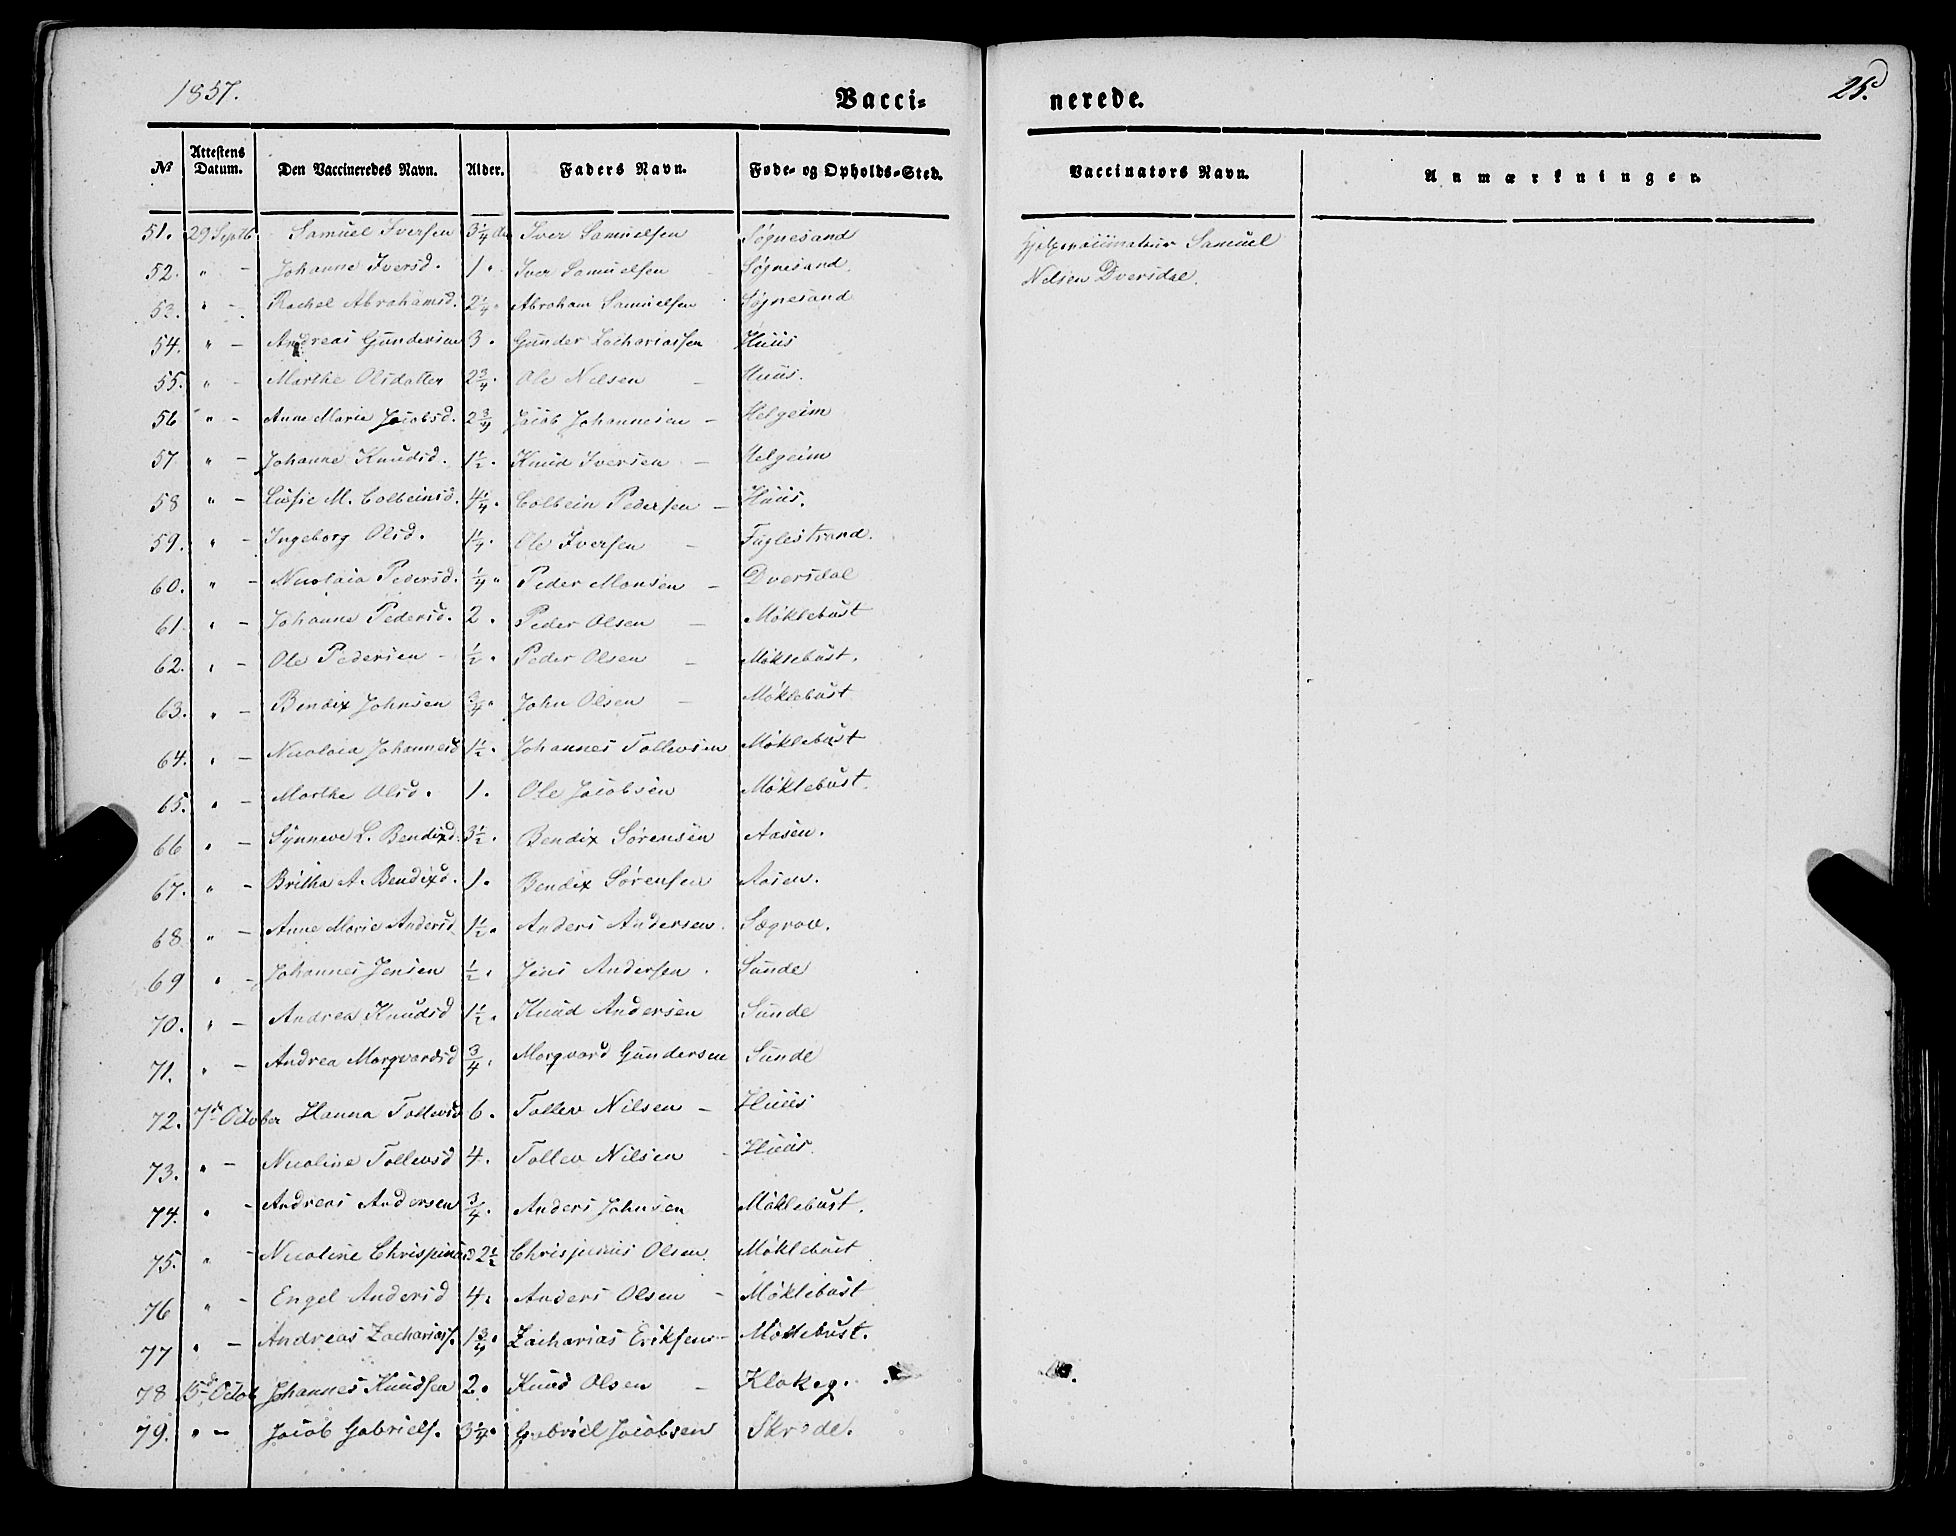 1857.
Vacci-
nerede.
25.
No Attestens Datum. Den Vaccineredes Navn. Alder. Faders Navn. Føde- og Opholds-Sted. Vaccinators Navn. Anmærkninger.
51. 29 Septb. Samuel Iversen 3 1/4 Iver Samuelsen Søgnesand Samuel
52. " - Johanne Iversd. 1 " Iver Samuelsen - Søgnesand. Nelsen Dversdal.
53. " - Rachel Abrahamsd. 2 1/4 " Abraham Samuelsen Søgnesand
54. " - Andreas Gundersen 3 . Gunder Zachariassen Huus
55. " - Marthe Olsdatter 2 3/4 . Ole Nelsen - Huus.
56 " - Anne Marie Jacobsd. 2 3/4 Jacob Johannesen - Helgeim
57 " - Johanne Knudsd. 1 1/2 . Knud Iversen - Helgeim
58 " - Lussie M. Colbeinsd. 4 1/4 . Colbein Pedersen - Huus.
59. " - Ingeborg Olsd. 1 1/4 . Ole Iversen - Fuglestrand.
60. " - Nicolaia Pedersd. 1/4 " Peder Monsen - Dversdal
61 " - Johanne Pedersd. 2 . Peder Olsen - Møklebust
62. " - Ole Pedersen - 1/2 . Peder Olsen - Møklebust.
63. " - Bendix Johnsen 3/4 " John Olsen - Møklebust
64. " - Nicolaia Johannesd 1 1/2 . Johannes Tollevsen Møklebust
65. " - Marthe Olsd. 1 . Ole Jacobsen Møklebust.
66 " - Synneve L. Bendixd. 3 1/2 . Bendix Sørensen Aasen.
67. " - Britha A. Bendixd. 1 . Bendix Sørensen Aasen.
68 " - Anne Marie Andersd 1 1/2 . Anders Andersen. Sægrov.
69 " - Johannes Jensen 1/2 . Jens Andersen . Sunde
70. " - Andrea Knudsd 1 1/2 . Knud Andersen Sunde
71. " - Andrea Marqvardsd 3/4 . Marqvard Gundersen Sunde
72. 7d October Hanna Tollevsd 6 . Tollev Nilsen - Huus
73. " - Nicoline Tollevsd 4 . Tollev Nilsen - Huus.
74. " - Andreas Andersen 3/4 . Anders Johnsen Møklebust.
75. " - Nicoline Chrispinusd 2 1/2 Chrispinus Olsen. Møklebust
76 " - Engel Andersd 4 . Anders Olsen - Møklebust
77 " - Andreas Zachariass. 1 3/4 . Zacharias Eriksen - Møklebust.
78 15d Octob Johannes Knudsen 2 . Knud Olsen - Klakeg.
79. " - Jacob Gabriels. 3 1/4 . Gabriel Jacobsen Skrede.